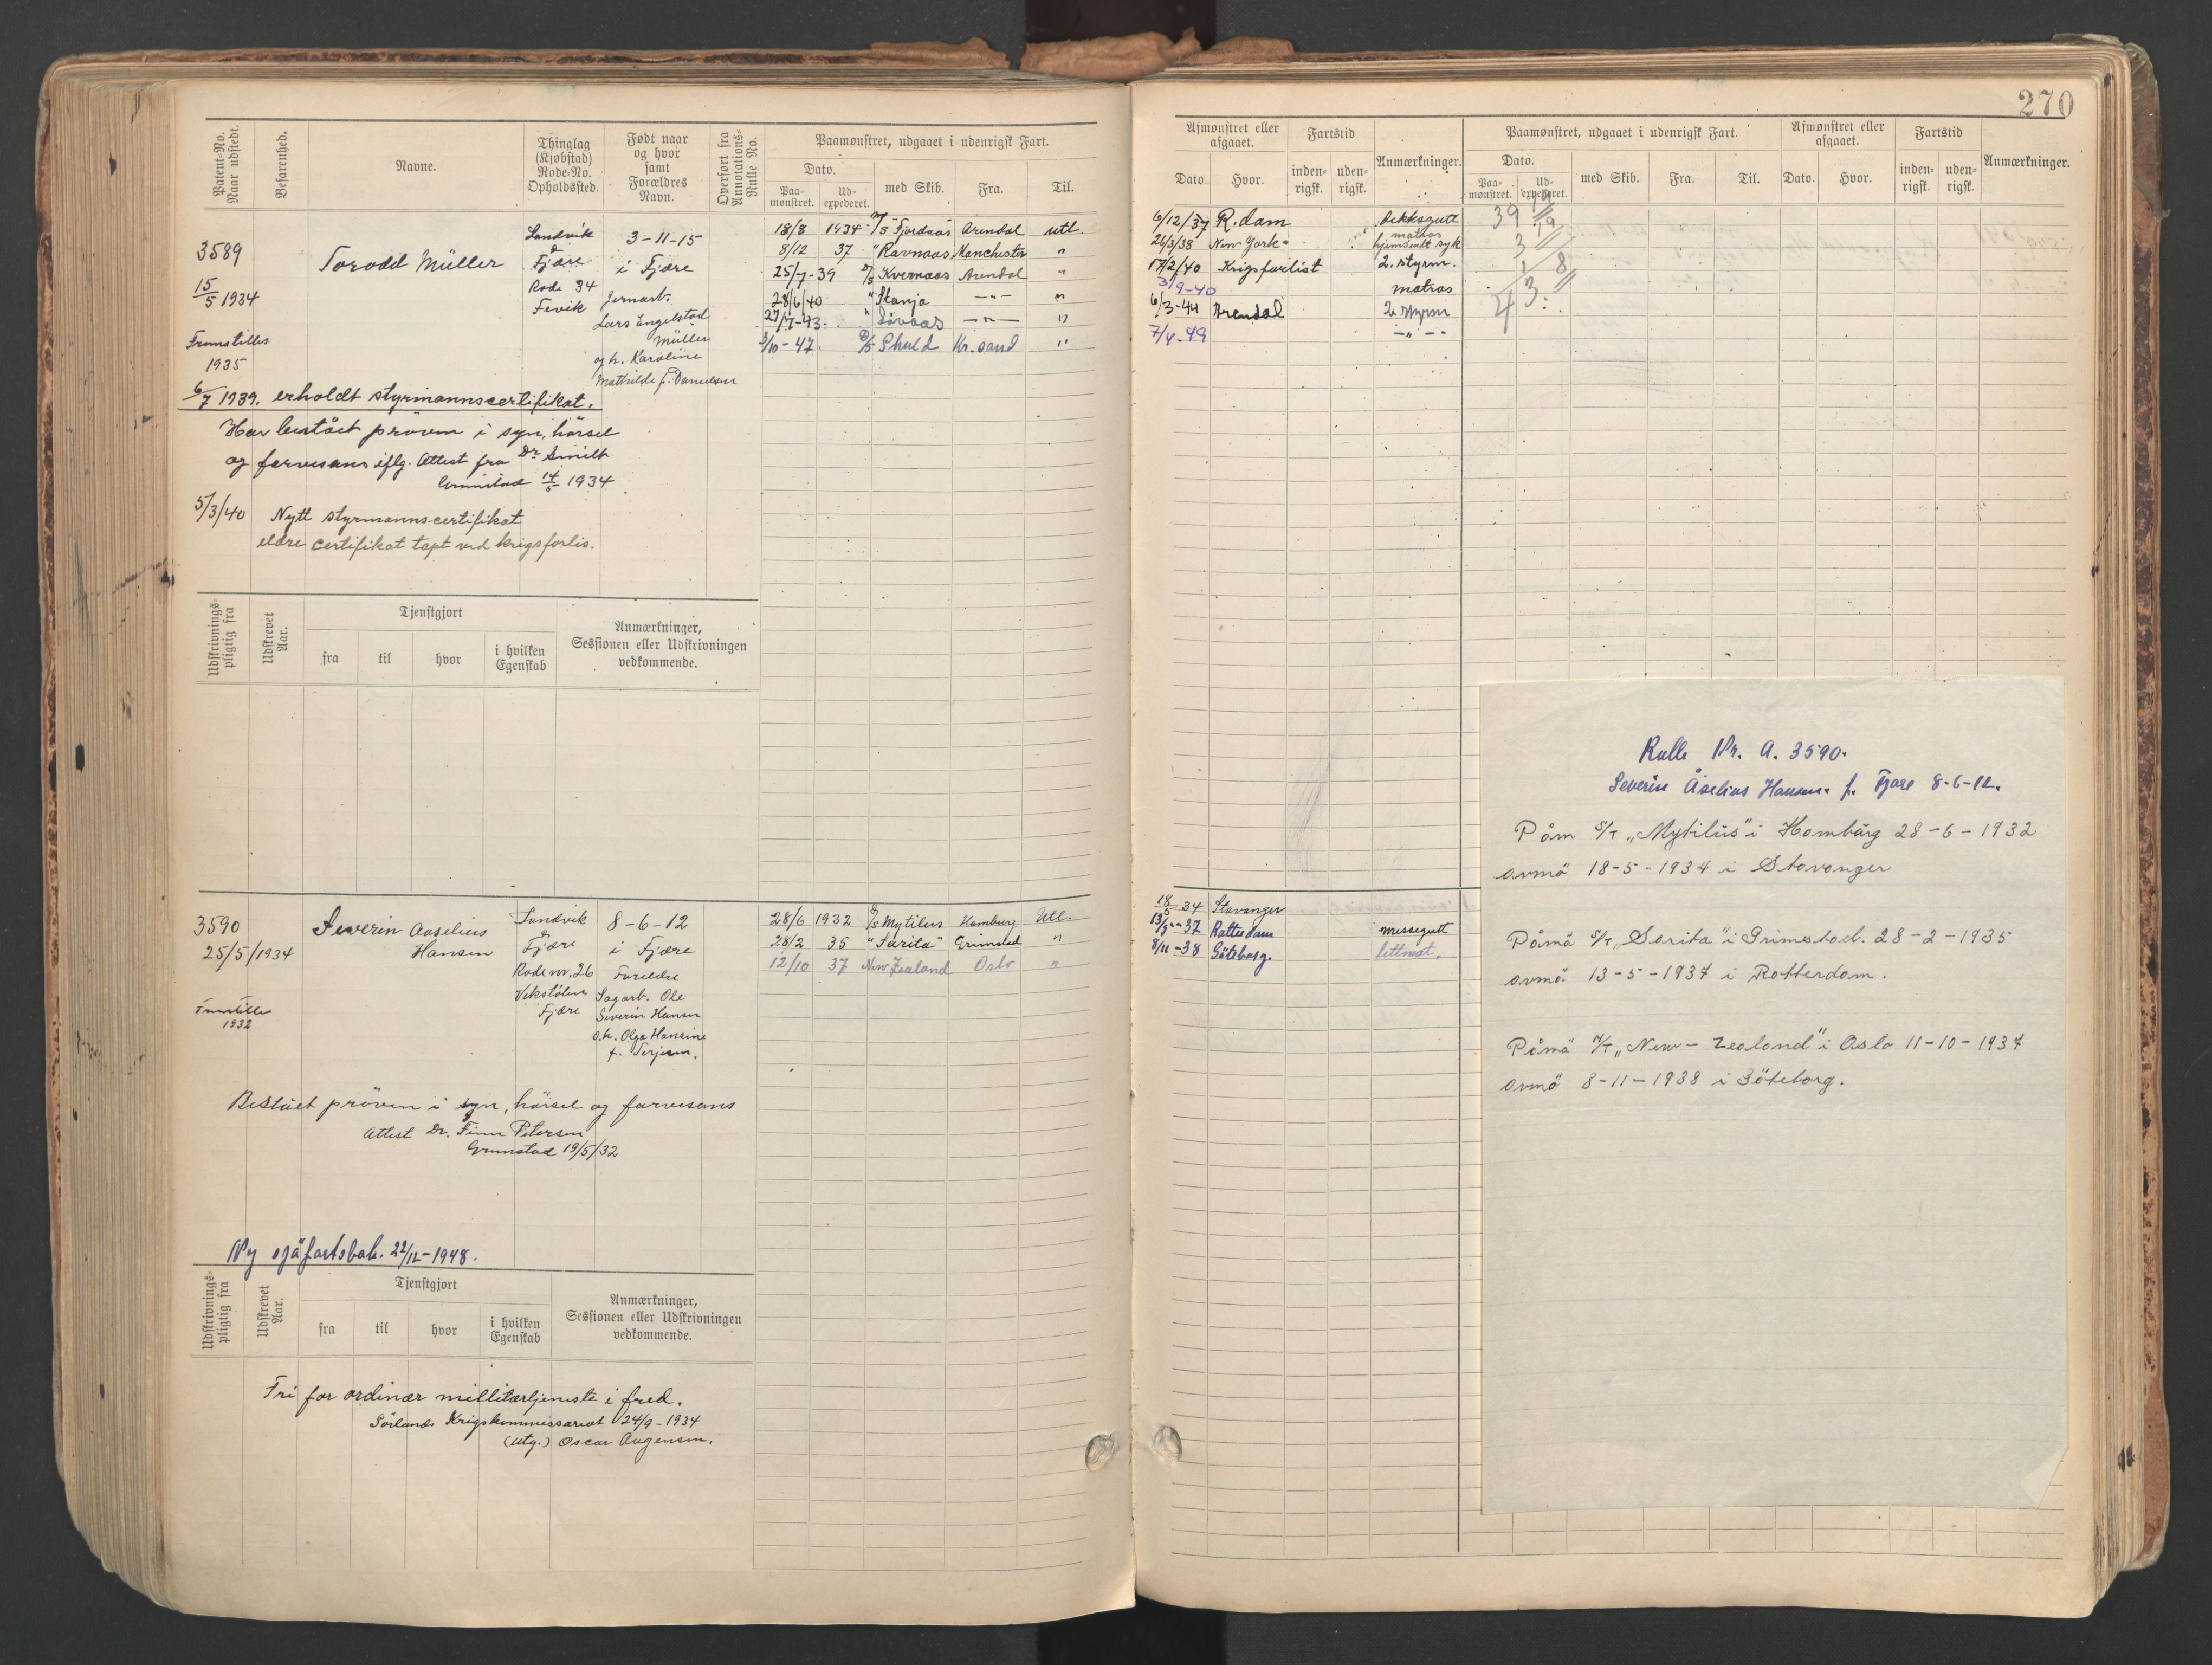 270
Patent-No. Naar udstedt.
Befarenhed.
Navne.
Thinglag (Kjøbstad) Rode-No. Opholdssted.
Født naar og hvor samt Forældres Navn.
Overført fra Annotations-Rulle No.
Paamønstret, udgaaet i udenrigsk Fart.
Dato.
Paa-mønstret.
Ud-expederet.
med Skib.
Fra.
Til.
Afmønstret eller afgaaet.
Dato.
Hvor.
Fartstid
inden-rigsk.
uden-rigsk.
Anmærkninger.
Paamønstret, udgaaet i udenrigsk Fart.
Dato.
Paa-mønstret.
Ud-expederet.
med Skib.
Fra.
Til.
Afmønstret eller afgaaet.
Dato.
Hvor.
Fartstid
inden-rigsk.
uden-rigsk.
Anmærkninger.
3589
15/5 1934
Fremstilles
1935
Torodd Müller
Landvik
&
Fjære
Rode 34
Fevik
3-11-15
i Fjære
Jernarb.
Lars Engelstad
Müller
og h. Karoline
Mathilde f. Danielsen
18/8 1934 M/S "Fjordaas" Arendal utl.
8/12 37 " Ravnaas Manchester "
25/7-39 D/S Kvernaas Arendal "
28/6/40 " Stanja —"— "
27/7-43. " Lövaas —"— "
3/10-47. D/S Skuld Kr.sand "
6/12/37 R.dam dekksgutt
26/3/38 New York matros hjemsendt syk
17/2/40 Krigsforlist 2. styrm.
3/9-40 matros
6/3-44 Arendal 2. styrm
7/4-49 —"—
6/7 1939. erholdt styrmannscertifikat.
Har bestått prøven i syn, hørsel
og farvesans iflg. Attest fra Dr. Smith
Grimstad 14/5 1934
5/3/40 Nytt styrmannscertifikat
eldre certifikat tapt ved krigsforlis.
Udskrivnings-pligtig fra
Udskrevet Aar.
Tjenstgjort
fra
til
hvor
i hvilken Egenskab
Anmærkninger,
Sessionen eller Udskrivningen
vedkommende.
3590
25/5/1934
Fremstilles
1932
Severin Aaselius
Hansen
Landvik
&
Fjære
Rode nr. 26
Vikstølen
Fjære
8-6-12
i Fjære
Foreldre
Sagarb. Ole
Severin Hansen
o.h. Olga Hansine
f. Terjesen.
28/6 1932 D/S Mytilus Hamburg Utl.
28/2 35 "Sarita" Grimstad "
12/10 37 New Zealand Oslo "
18/5 34 Stavanger
13/5-37 Rotterdam messegutt
8/11-38 Göteborg. lettmat.
Bestået prøven i syn, hørsel og farvesans
Attest Dr. Finn Petersen
Grimstad 19/5/32
Ny sjøfartsbok. 22/12-1948.
Udskrivnings-pligtig fra
Udskrevet Aar.
Tjenstgjort
fra
til
hvor
i hvilken Egenskab
Anmærkninger,
Sessionen eller Udskrivningen
vedkommende.
Fri for ordinær millitærtjeneste i fred.
Sørlands Krigskommissariat 24/9-1934
(utg.) Oscar Augensen.
Rulle Nr. A. 3590.
Severin Åselius Hansen. f. Fjære 8-6-12.
Påm S/T „Mytilus" i Hamburg 28-6-1932
avmø 18-5-1934 i Stavanger
Påmø S/T „Sarita" i Grimstad. 28-2-1935
avmø. 13-5-1937 i Rotterdam.
Påmø M/T „New-Zealand" i Oslo 11-10-1937
avmø 8-11-1938 i Göteborg.